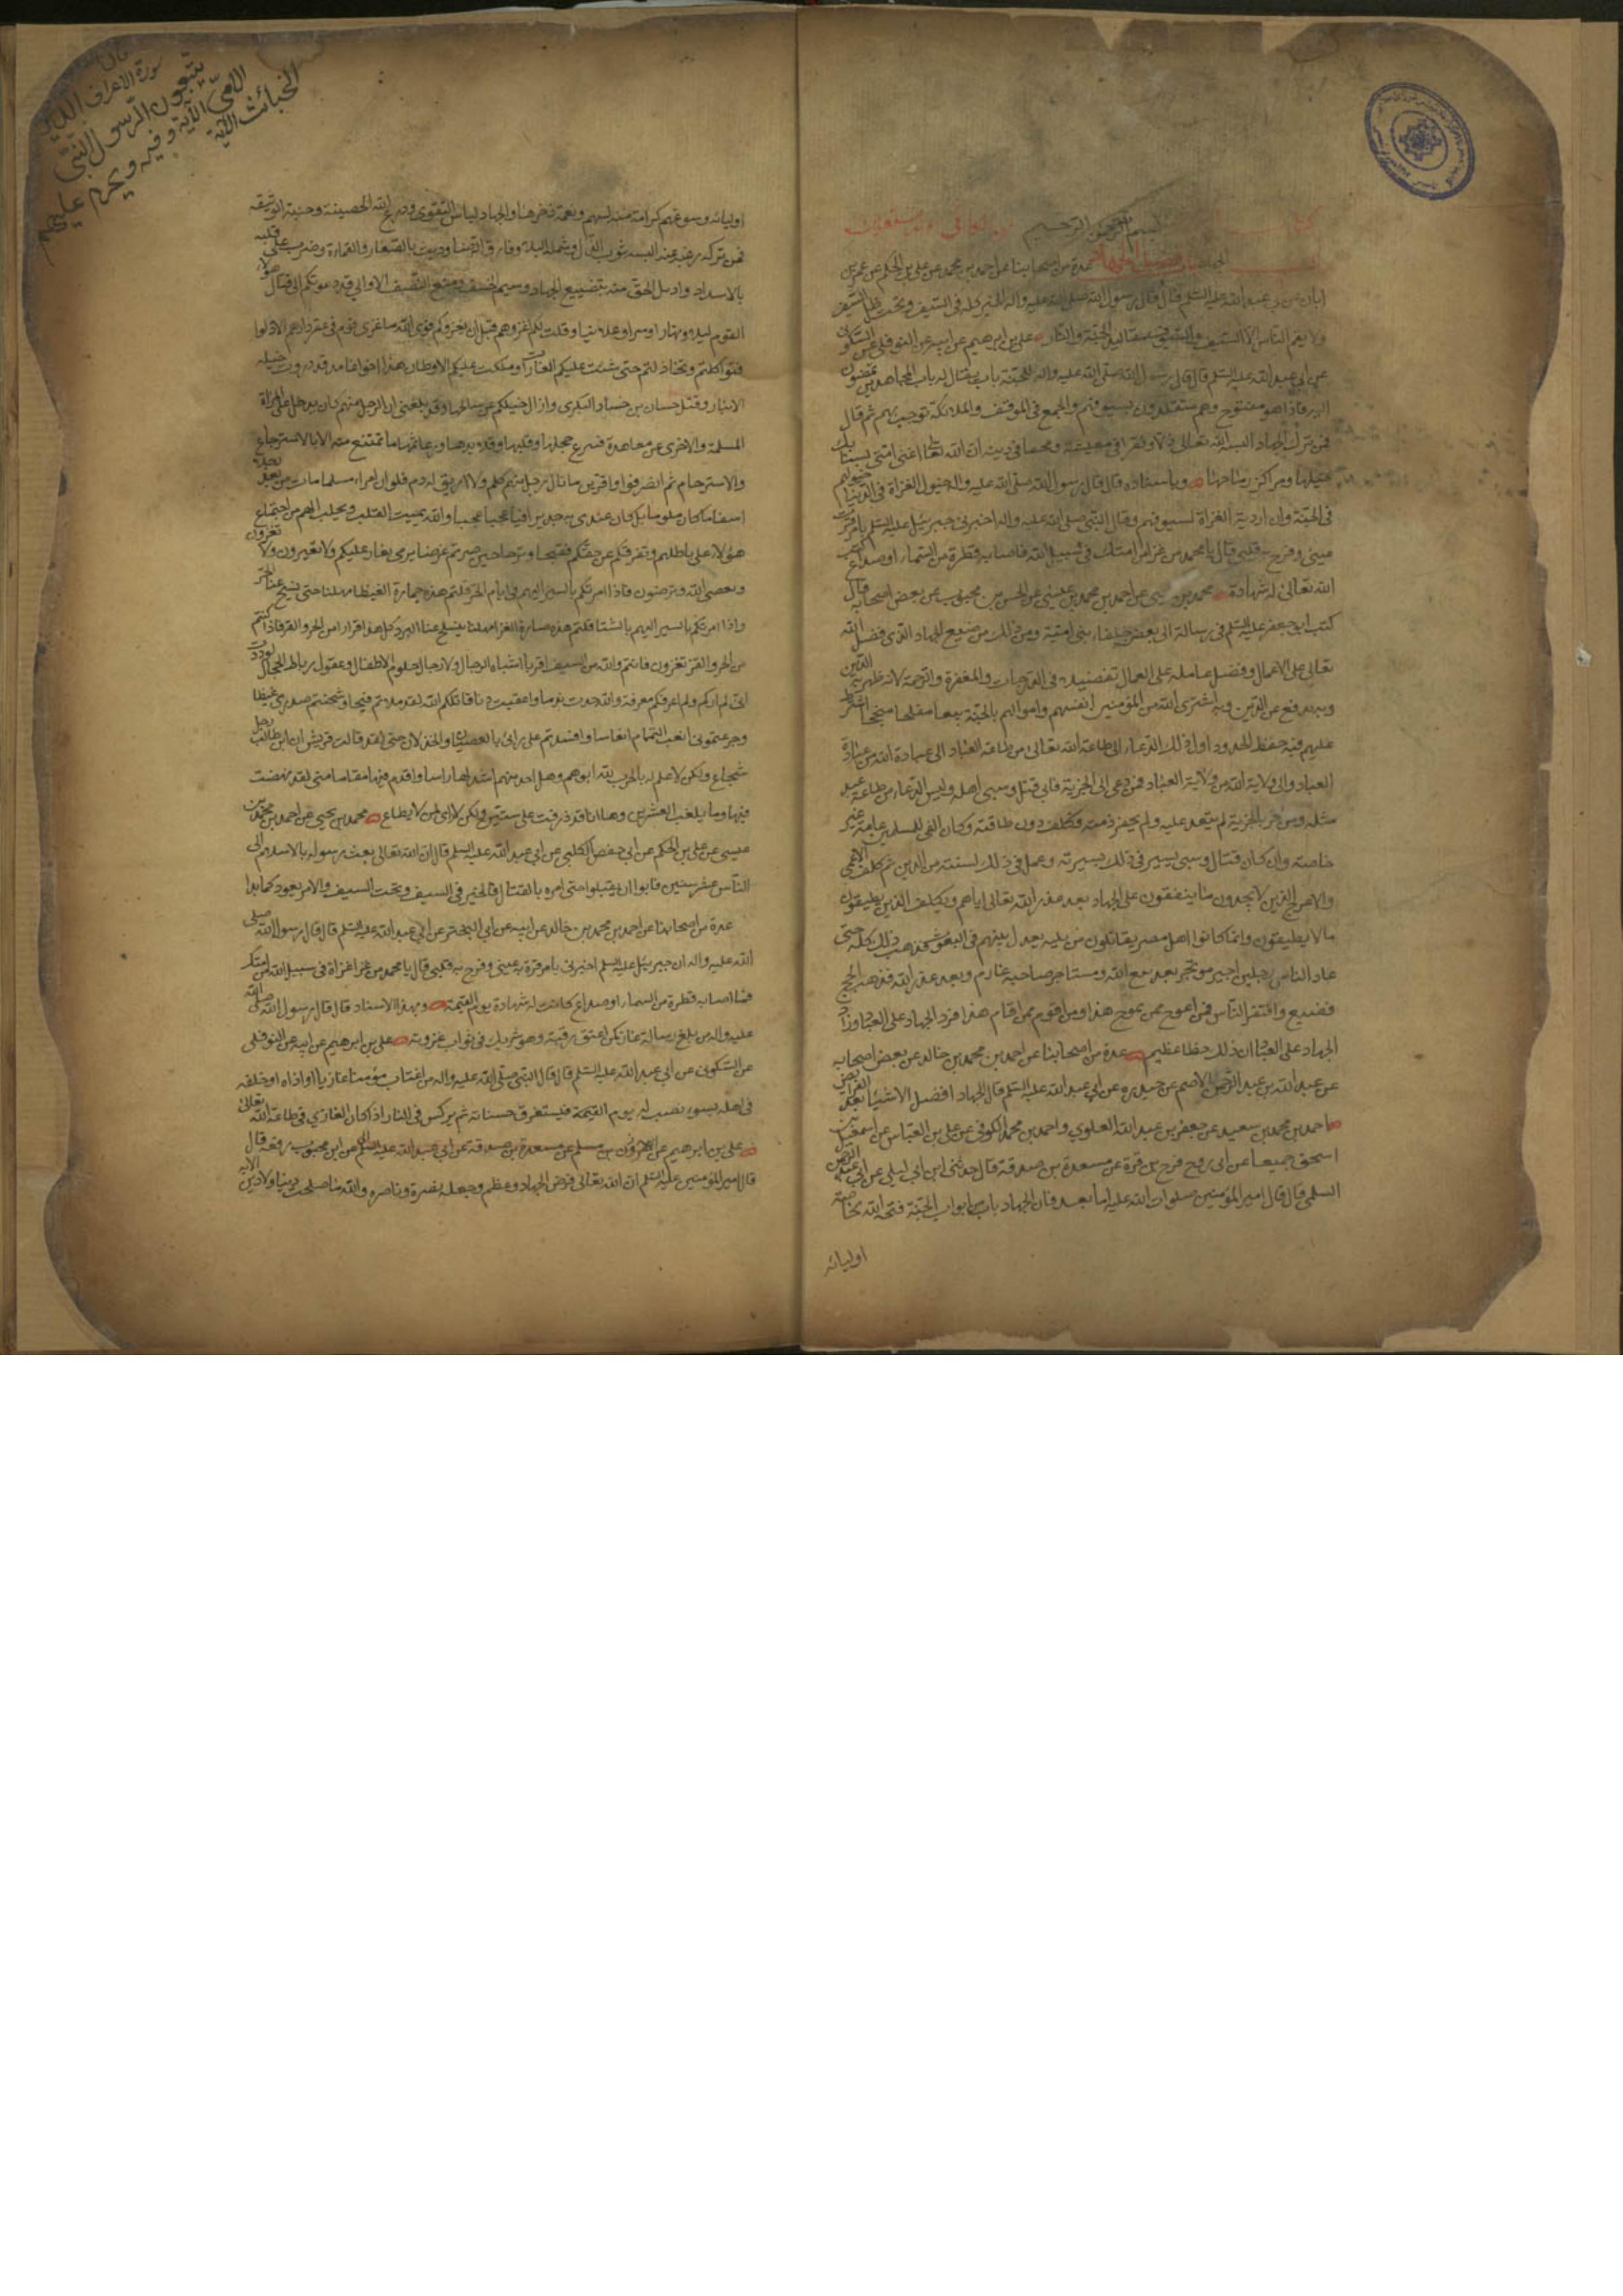 بسم الله الرحمن الرحيم
فضل الجهاد عدة من اصحابنا عن احمد بن محمد عن علي بن الحكم عن عمر بن
ابان عن ابي عبد الله عليه السلم قال قال رسول الله صلى الله عليه واله الخير كله في السيف وتحت ظل السيف
ولا يقيم الناس الا السيف والسيوف مقاليد الجنة والنار علي بن ابرهيم عن ابيه عن النوفلي عن السكوني
عن ابي عبد الله عليه السلم قال قال رسول الله صلى الله عليه واله للجنة باب يقال له باب المجاهدين يمضون
اليه فاذا هو مفتوح وهم متقلدون بسيوفهم والجمع في الموقف والملائكة ترحب بهم ثم قال
فمن ترك الجهاد البسه الله تعالى ذلا وفقرا في معيشته ومحقا في دينه ان الله تعالى اغنى امتي بسنابك
خيلها ومراكز رماحها وباسناده قال قال رسول الله صلى الله عليه واله خيول الغزاة في الدنيا خيولهم
في الجنة وان اردية الغزاة لسيوفهم وقال النبي صلى الله عليه واله اخبرني جبرئيل عليه السلم بامر قرت
عيني وفرح به قلبي قال يا محمد من غزا من امتك في سبيل الله فاصابه قطرة من السماء او صداع كتب
الله تعالى له شهادة محمد بن يحيى عن احمد بن محمد بن عيسى عن الحسن بن محبوب عن بعض اصحابه قال
كتب ابو جعفر عليه السلم في رسالة الى بعض خلفاء بني امية ومن ذلك من ضيع الجهاد الذي فضل الله
تعالى على الاعمال وفضل عامله على العمال تفضيلا في الدرجات والمغفرة والرحمة لانه ظهر به الدين
وبه يدفع عن الدين وبه اشترى الله من المؤمنين انفسهم واموالهم بالجنة بيعا مفلحا منجحا اشترط
عليهم فيه حفظ الحدود اول ذلك الدعاء الى طاعة الله تعالى من طاعة العباد والى عبادة الله من عبادة
العباد والى ولاية الله من ولاية العباد فمن دعي الى الجزية فابى قتل وسبي اهله وليس الدعاء من طاعة عبد
مثله ومن اقر بالجزية لم يتعد عليه ولم يخفر ذمته وكلف دون طاقته وكان الفي للمسلمين عامة غير
خاصة وان كان قتال وسبي يسير في ذلك بسيرته وعمل في ذلك بسنته من الدين ثم كلف الاعمى
والاعرج الذين لا يجدون ما ينفقون على الجهاد بعد عذر الله تعالى اياهم ويكلف الذين يطيقون
ما لا يطيقون وانما كانوا اهل مصر يقاتلون من يليه يعدل بينهم في البعوث فذهب ذلك كله حتى
عاد الناس رجلين اجير مؤتجر بعد بيع الله ومستاجر صاحبه غارم وبعد عذر الله فذهب الحج
فضيع وافتقر الناس فمن اعوج ممن عوج هذا ومن اقوم ممن اقام هذا فرد الجهاد على العباد وزاد
الجهاد على العباد ان ذلك خطا عظيم عدة من اصحابنا عن احمد بن محمد بن خالد عن بعض اصحابه
عن عبد الله بن عبد الرحمن الاصم عن حيدرة عن ابي عبد الله عليه السلم قال الجهاد افضل الاشياء بعد الفرايض
احمد بن محمد بن سعيد عن جعفر بن عبد الله العلوي واحمد بن محمد الكوفي عن علي بن العباس عن اسمعيل بن
اسحق جميعا عن ابي روح فرج بن قرة عن مسعدة بن صدقة قال حدثني ابن ابي ليلى عن ابي عبد الرحمن
السلمي قال قال امير المؤمنين صلوات الله عليه اما بعد فان الجهاد باب من ابواب الجنة فتحه الله لخاصة
اوليائه
سورة الاعراف الذين
يتبعون الرسول النبي
الامي الاية وفيه ويحرم عليهم
الخبائث الاية
اوليائه وسوغهم كرامة منه لهم ونعمة ذخرها والجهاد لباس التقوى ودرع الله الحصينة وجنته الوثيقة
فمن تركه رغبة عنه البسه ثوب الذل وشمله البلاء وفارق الرضا وديث بالصغار والقماءة وضرب على قلبه
بالاسداد وادل الحق منه بتضييع الجهاد وسيم الخسف ومنع النصف الا واني قد دعوتكم الى قتال هؤلاء
القوم ليلا ونهارا وسرا وعلانيا وقلت لكم اغزوهم قبل ان يغزوكم فوالله ما غزي قوم في عقر دارهم الا ذلوا
فتواكلتم وتخاذلتم حتى شنت عليكم الغارات وملكت عليكم الاوطان هذا اخو غامد قد وردت خيله
الانبار وقتل حسان بن حسان البكري وازال خيلكم عن مسالحها وقد بلغني ان الرجل منهم كان يدخل على المراة
المسلمة والاخرى المعاهدة فينزع حجلها وقلبها وقلائدها ورعاثها ما تمتنع منه الا بالاسترجاع
والاسترحام ثم انصرفوا وافرين ما نال رجل منهم كلم ولا اريق له دم فلو ان امرء مسلما مات من بعد هذا
اسفا ما كان ملوما بل كان عندي به جديرا فيا عجبا عجبا والله يميت القلب ويجلب الهم من اجتماع
هؤلاء على باطلهم وتفرقكم عن حقكم فقبحا لكم وترحا حين صرتم غرضا يرمى يغار عليكم ولا تغيرون وتغزون ولا
ويعصى الله وترضون فاذا امرتكم بالسير اليهم في ايام الحر قلتم هذه حمارة القيظ امهلنا حتى يسبخ عنا الحر
واذا امرتكم بالسير اليهم بالشتا قلتم هذه صبارة القر امهلنا ينسلخ عنا البرد كل هذا فرارا من الحر والقر فاذا كنتم
من الحر والقر تفرون فانتم والله من السيف افر يا اشباه الرجال ولا رجال حلوم الاطفال وعقول ربات الحجال لوددت
اني لم اركم ولم اعرفكم معرفة والله جرت ندما واعقبت ذما قاتلكم الله لقد ملاتم قيحا وشحنتم صدري غيظا
وجرعتموني نغب التهمام انفاسا وافسدتم علي رايي بالعصيان والخذلان حتى لقد قالت قريش ان ابن ابي طالب رجل
شجاع ولكن لا علم له بالحرب لله ابوهم وهل احد منهم اشد لها مراسا واقدم فيها مقاما مني لقد نهضت
فيها وما بلغت العشرين وها انا قد ذرفت على ستين ولكن لا راي لمن لا يطاع محمد بن يحيى عن احمد بن محمد بن
عيسى عن علي بن الحكم عن ابي حفص الكلبي عن ابي عبد الله عليه السلم قال ان الله تعالى بعث رسوله بالاسلام الى
الناس عشر سنين فابوا ان يقبلوا حتى امره بالقتال فالخير في السيف وتحت السيف والامر يعود كما بدا
عدة من اصحابنا عن احمد بن محمد بن خالد عن ابيه عن ابي البختري عن ابي عبد الله عليه السلم قال قال رسول الله صلى
الله عليه واله ان جبرئيل عليه السلم اخبرني بامر قرت به عيني وفرح به قلبي قال يا محمد من غزا غزاة في سبيل الله من امتك
فما اصابه قطرة من السماء او صداع كانت له شهادة يوم القيمة وبهذا الاسناد قال قال رسول الله صلى الله
عليه واله من بلغ رسالة غاز كمن اعتق رقبة وهو شريك في ثواب غزوته علي بن ابرهيم عن ابيه عن النوفلي
عن السكوني عن ابي عبد الله عليه السلم قال قال النبي صلى الله عليه واله من اغتاب مؤمنا غازيا او اذاه او خلفه
في اهله بسوء نصب له يوم القيمة فيستغرق حسناته ثم يركس في النار اذا كان الغازي في طاعة الله تعالى
علي بن ابرهيم عن هرون بن مسلم عن مسعدة بن صدقة عن ابي عبد الله عليه السلم عن ابن محبوب رفعه قال
قال امير المؤمنين عليه السلم ان الله تعالى فرض الجهاد وعظمه وجعله نصره وناصره والله ما صلحت دنيا ولا دين الا به